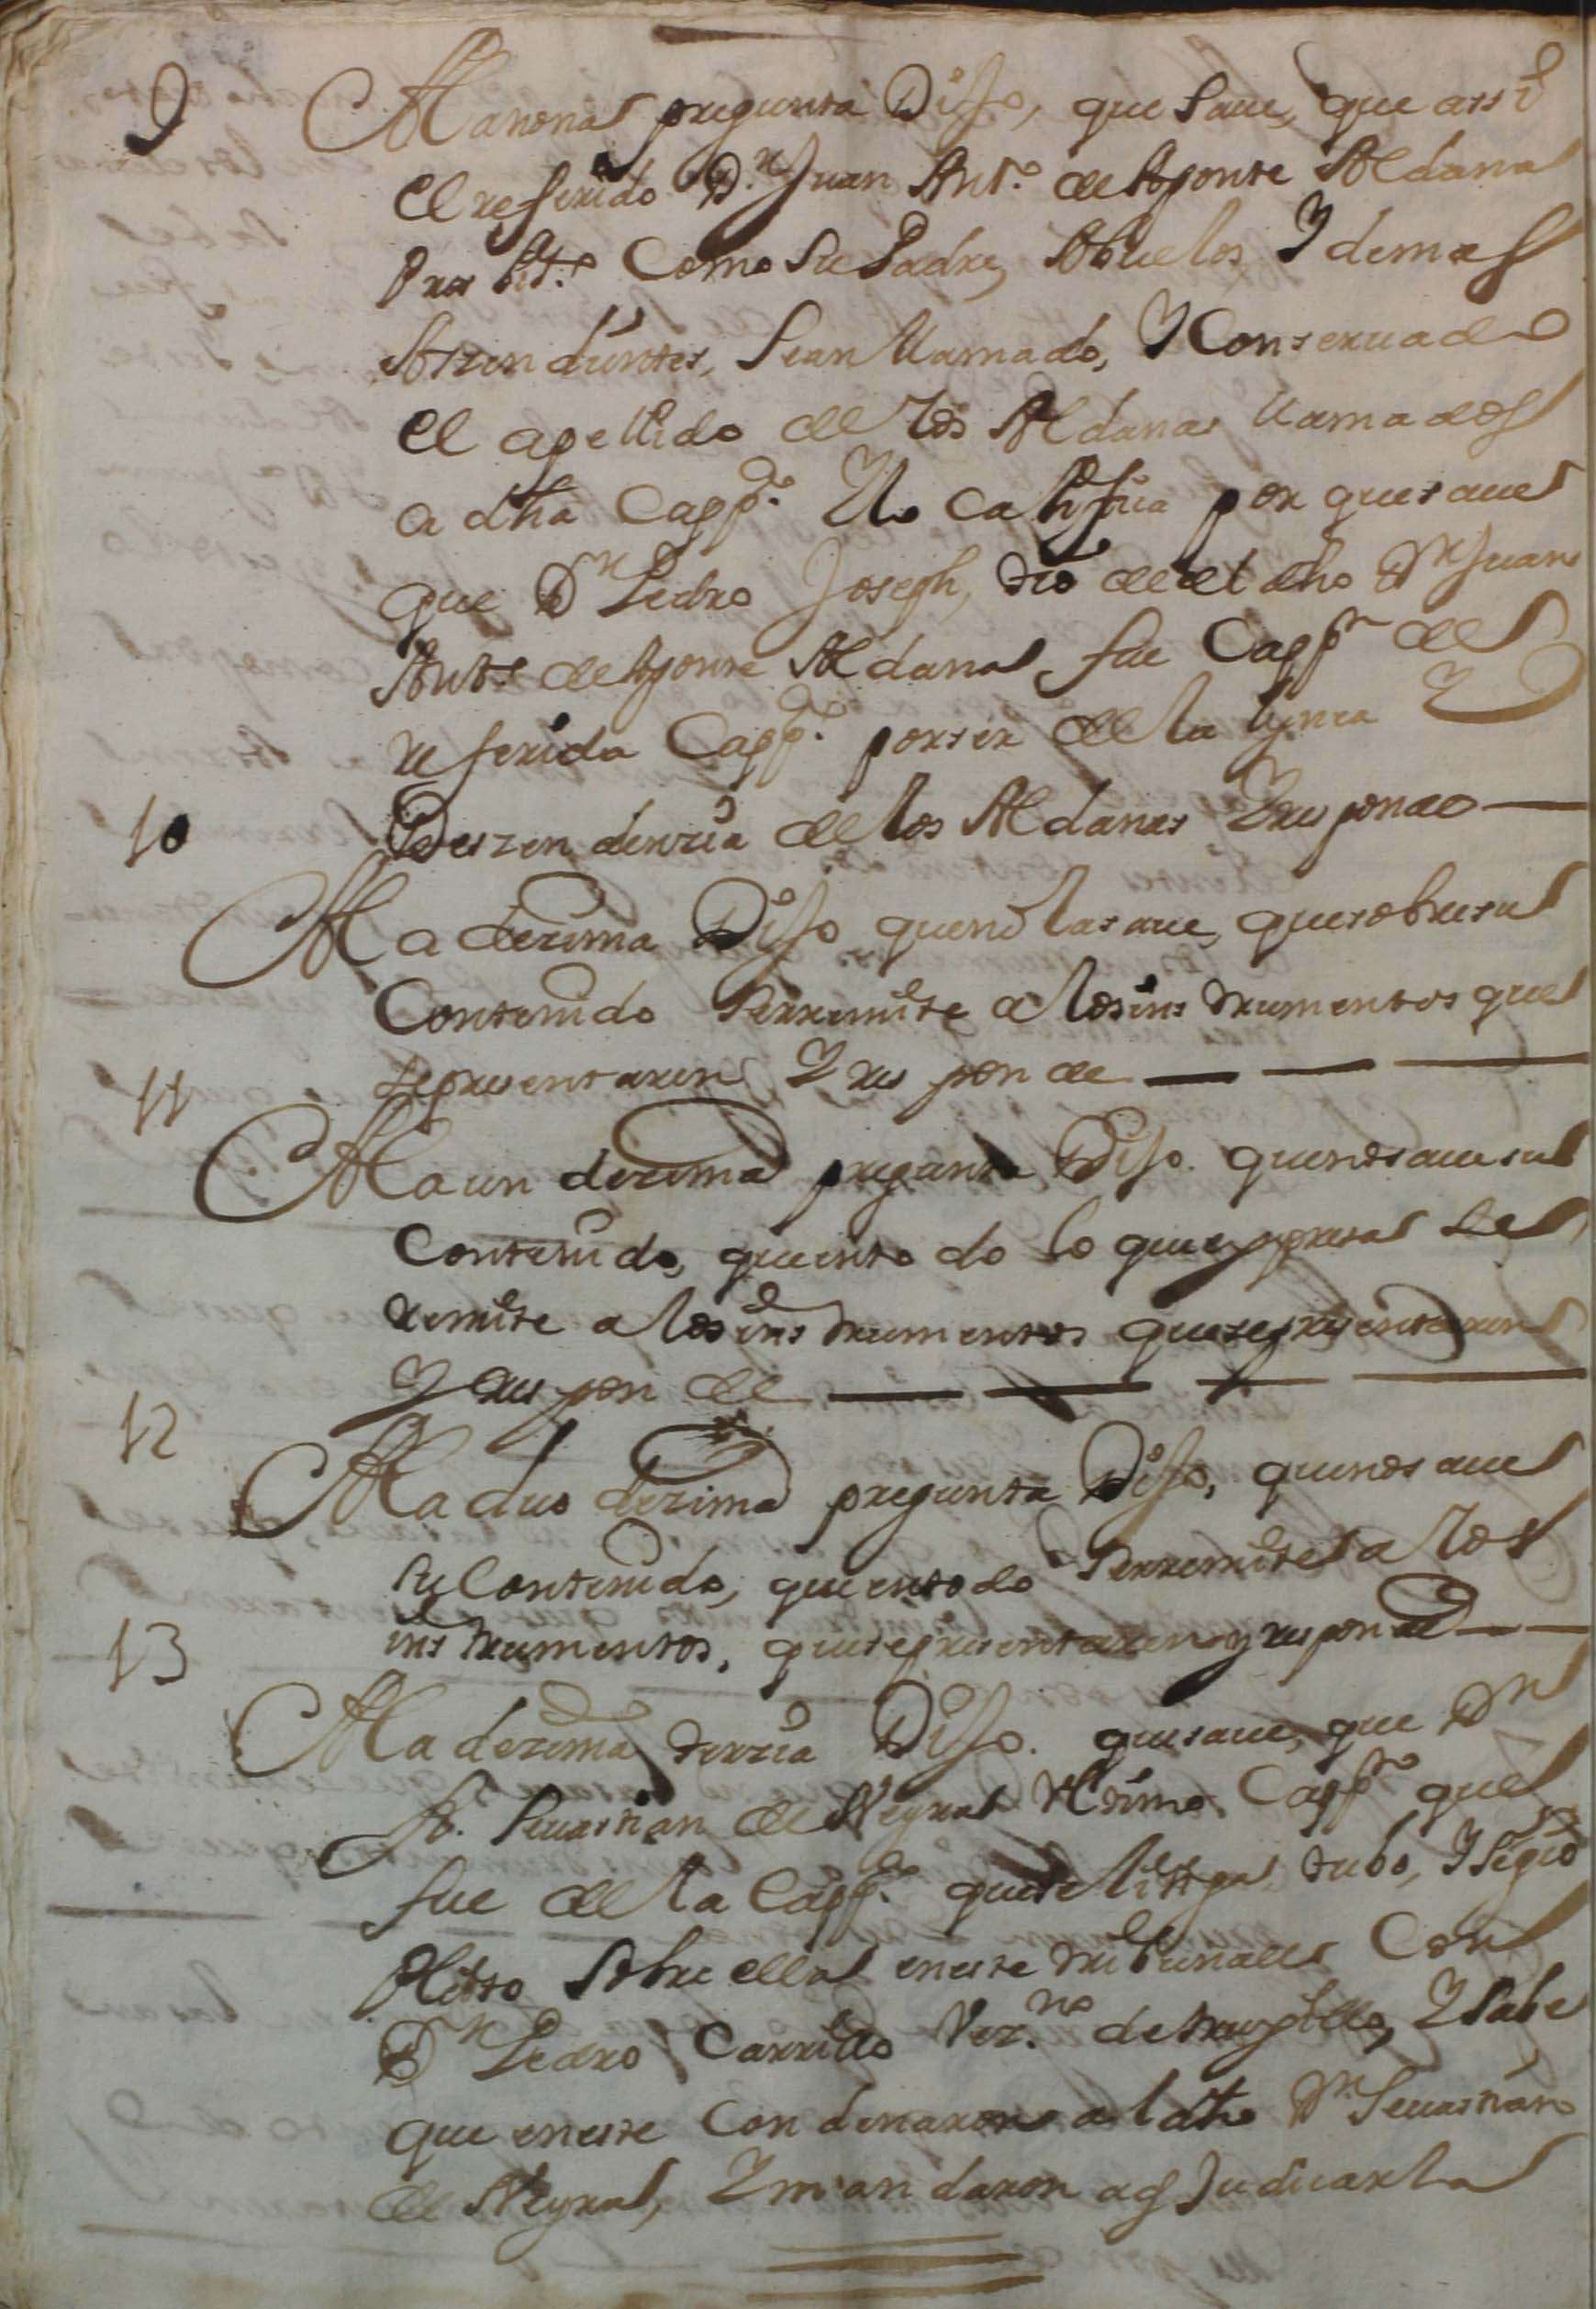 9 A la nona pregunta Dijo, que saue, que assi
el referido D.n Juan Ant.o de Aponte Aldana
Presbit.o Como su Padre, Abuelos Y demas
Aszendientes, sean llamado, Y Conseruado
el apellido de los Aldanas llamados
a dha Capp.a Y lo califica por que saue
que D.n Pedro Joseph, tio de el dho D.n Juan
Ant.o de Aponte Aldana, fue Capp.n de
referida Capp.a por ser de la lynea Y
Deszendenzia de los Aldanas Y responde
10 A la dezima Dijo que no la saue, que sobre su
Contenido se rremite a los instrumentos que
se presentaren Y responde
11 A la un dezima pregunta Dijo. que no saue su
Contenido, que en todo lo que expresa se
remite a los instrumentos que se presentaren
Y responde
12 A la duo dezima pregunta Dijo, que no saue
su Contenido, que en todo se rremite a los
instrumentos, que se presentaren y responde
13 A la dezima terzia Dijo. que saue, que D.n
Seuastian de Neyra Vltimo Capp.n que
fue de la Capp.a que se litiga tubo, Y siguio
Pleito sobre ella en este tribunal Con
D.n Pedro Carrillo Vez.no de truxillo, Y sabe
que en este Condenaron al dho D.n Seuastian
de Neyra, Y mandaron adjudicarla